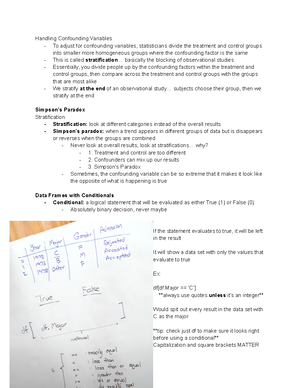 Handling Confounding Variables
- To adjust for confounding variables, statisticians divide the treatment and control groups
into smaller more homogeneous groups where the confounding factor is the same
- This is called stratification... basically the blocking of observational studies
- Essentially, you divide people up by the confounding factors within the treatment and
control groups, then compare across the treatment and control groups with the groups
that are most alike
- We stratify at the end of an observational study... subjects choose their group, then we
stratify at the end
Simpson's Paradox
Stratification
- Stratification: look at different categories instead of the overall results
- Simpson's paradox: when a trend appears in different groups of data but is disappears
or reverses when the groups are combined
- Never look at overall results, look at stratifications... why?
- 1. Treatment and control are too different
- 2. Confounders can mix up our results
- 3. Simpson's Paradox
- Sometimes, the confounding variable can be so extreme that it makes it look like
the opposite of what is happening is true
Data Frames with Conditionals
- Conditional: a logical statement that will be evaluated as either True (1) or False (0)
- Absolutely binary decision, never maybe
Year Major Gender Admission
Rejected
Accepted
Accepted
True False
df [ df. Major ==
conditional
== exactly equal
If the statement evaluates to true, it will be left
in the result
It will show a data set with only the values that
evaluate to true
Ex:
df[df.Major == 'C']
**always use quotes unless it's an integer**
Would spit out every result in the data set with
C as the major
**tip: check just df to make sure it looks right
before using a conditional**
Capitalization and square brackets MATTER